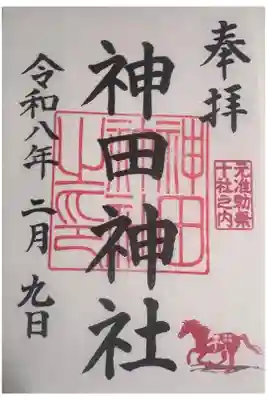 奉拝
元准勅祭
十社之内
神田神社
神田
神社
之印
令和八年 二月 九日